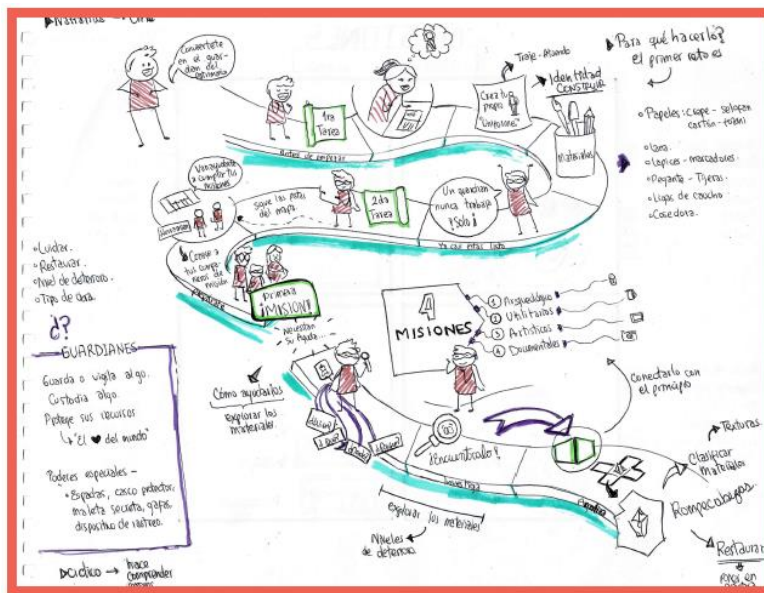 Conviértete
en el guar-
dian del
patrimonio
1ra
Tarea
Antes de empezar
Crea tu
propio
"Uniforme"
Traje - Atuendo
Identidad
CONSTRUIR
Materiales
¿Para qué hacerlo?
el primer reto es
Papeles: crepe - selofan
cartón - foami
Lana.
Lapices - marcadores.
Pegante - Tijeras
Ligas de caucho
Cosedora.
Van ayudarte
a cumplir tus
misiones
Sigue las pistas
del mapa.
2da
Tarea
Un guardian
nunca trabaja
¡Solo!
Ya que estas listo
Conoce a
tus compa-
ñeros de
misión
Preparate
Primera
¡MISION!
Necesitan
su Ayuda...
Cuidar.
Restaurar.
Nivel de deterioro.
Tipo de obra.
¿?
GUARDIANES
Guarda o vigila algo.
Custodia algo
Protege sus recursos
"El ♥ del mundo"
Poderes especiales -
Espadas, casco protector,
maleta secreta, gafas,
dispositivo de rastreo.
hace
comprender
4
MISIONES
1 Arqueológico
2 Utilitarios
3 Artísticos
4 Documentales
conectarlo con
el principio
Cómo ayudarlos
Explorar los
materiales.
¿Qué?
¡Encuentralo!
Investiga
Explorar los materiales
Niveles
de deterioro
Texturas
Clasificar
materiales
Rompecabezas
Restaurar